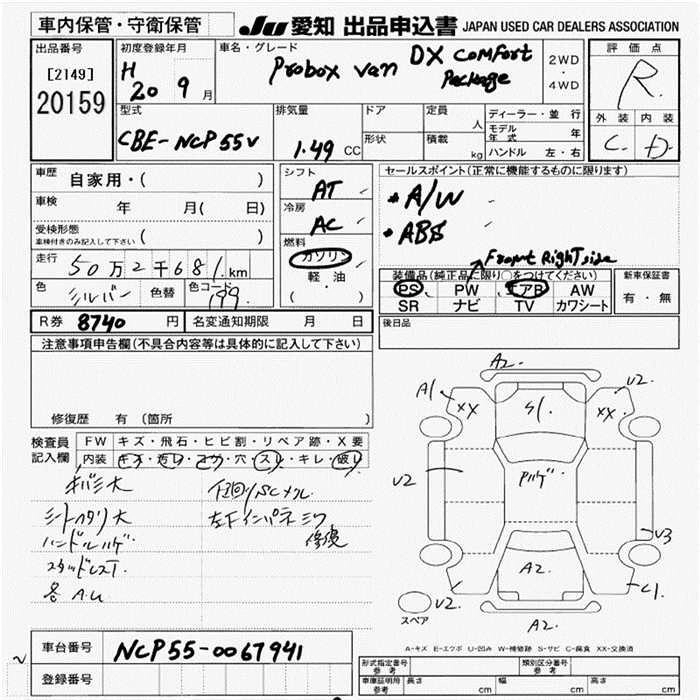 車内保管・守衛保管 JU 愛知 出品申込書 JAPAN USED CAR DEALERS ASSOCIATION
出品番号
[2149]
20159
初度登録年月
H
20 9 月
車名・グレード
Probox van DX comfort
Package
2WD
・
4WD
評価点
R
外装 内装
C- D-
型式
CBE-NCP55V
排気量
1.49 CC
ドア
形状
定員
人
積載
kg
ディーラー・並行
モデル年式 年
ハンドル 左・右
車歴 自家用・( )
車検 年 月( 日)
受検形態
車検付きのみ記入して下さい ( )
走行 50万2千681km
色 シルバー 色替 色コード 199
シフト
AT
冷房
AC
燃料
ガソリン
軽・油
( )
セールスポイント(正常に機能するものに限ります)
* A/W
* ABS
Front Right side
装備品(純正品に限り○をつけてください)
PS PW エアB AW
SR ナビ TV カワシート
新車保証書
有・無
R券 8740 円 名変通知期限 月 日
後日品
注意事項申告欄(不具合内容等は具体的に記入して下さい)
修復歴 有 (箇所 )
検査員
記入欄
FW キズ・飛石・ヒビ割・リペア跡・X要
内装 キズ・汚レ・コゲ・穴・スレ・キレ・破レ
シートヘタリ大
ハンドルハゲ
各A.U
A2.
A1
XX
S1.
XX
V2.
V2
V3
A2.
V2.
C1.
A2.
スペア
A-キズ E-エクボ U-凹み W-補修跡 S-サビ C-腐食 XX-交換済
車台番号 NCP55-0067941
登録番号
形式指定番号
参考
類別区分番号
参考
車庫証明用
参考
長さ cm 幅 cm 高さ cm